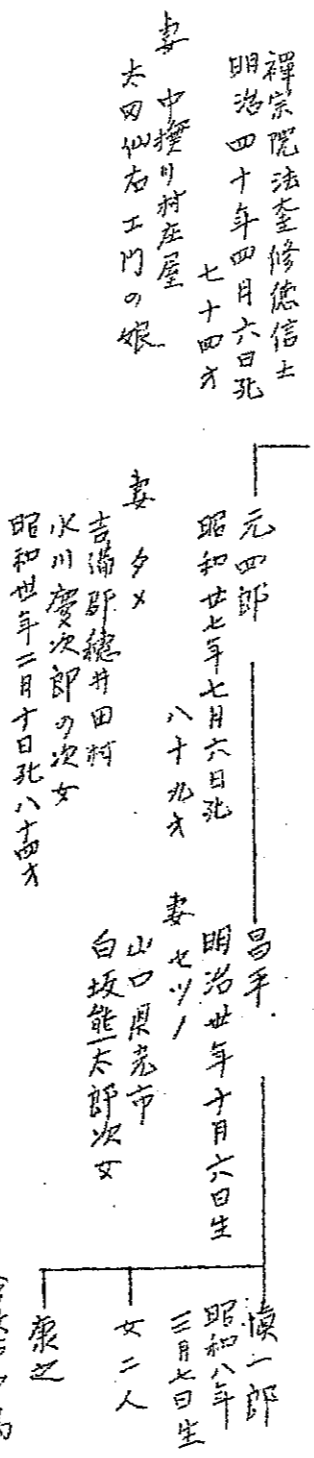 禪宗院法奎修徳信士
明治四十年四月六日死
七十四才
妻 中撫川村庄屋
太田仙右エ門の娘
元四郎
昭和廿七年七月六日死
八十九才
妻 タメ
吉備郡穂井田村
水川慶次郎の次女
昭和卅年二月十日死八十四才
昌平
明治卅年十月六日生
妻セツノ
山口県光市
白坂熊太郎次女
慎一郎
昭和八年
三月七日生
女二人
康之